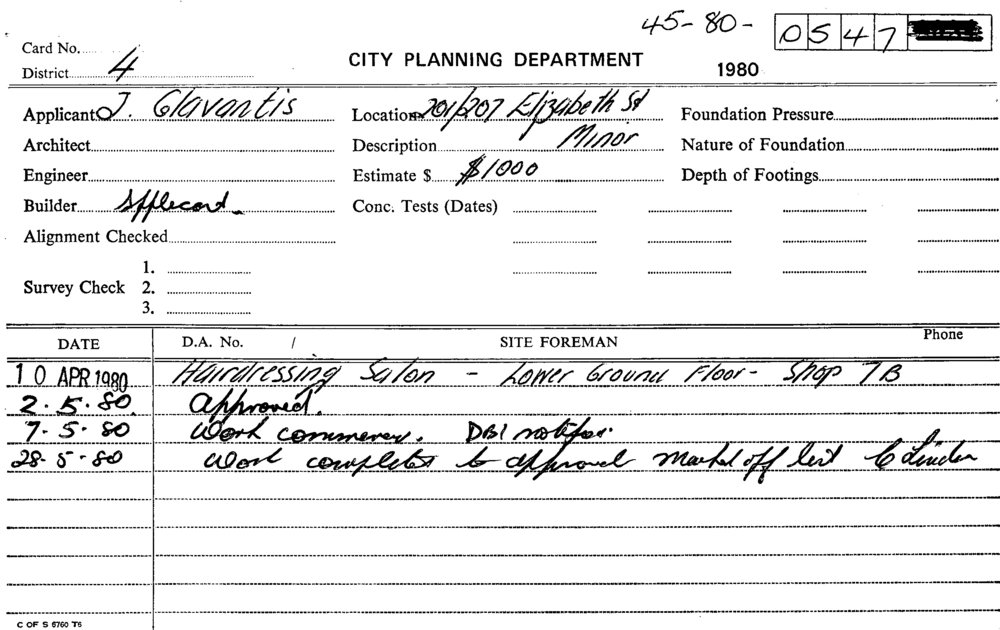 45-80- 0547
Card No.
District 4
CITY PLANNING DEPARTMENT
1980
Applicant J. Glavantis
Location 201/207 Elizabeth St
Foundation Pressure
Architect
Description Minor
Nature of Foundation
Engineer
Estimate $ $1000
Depth of Footings
Builder
Conc. Tests (Dates)
Alignment Checked
Survey Check
1.
2.
3.
DATE D.A. No. / SITE FOREMAN Phone
10 APR 1980 Hairdressing Salon - Lower Ground Floor - Shop 7B
2.5.80. Approved.
7.5.80 Work commences. DBI
28.5.80 Work completed to approval Marked off list
C OF S 6760 T6